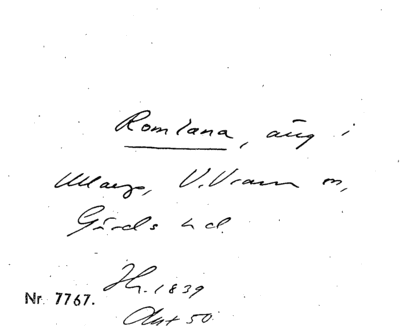 Romlana, äng i
Maryo, V. Vram sn,
Gärds hd.
Jh. 1839
Nr 7767.
Akt 50.